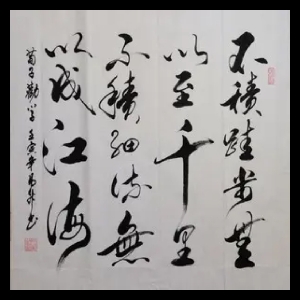 不積跬步無
以至千里
不積細流無
以成江海
荀子勸學 壬寅年